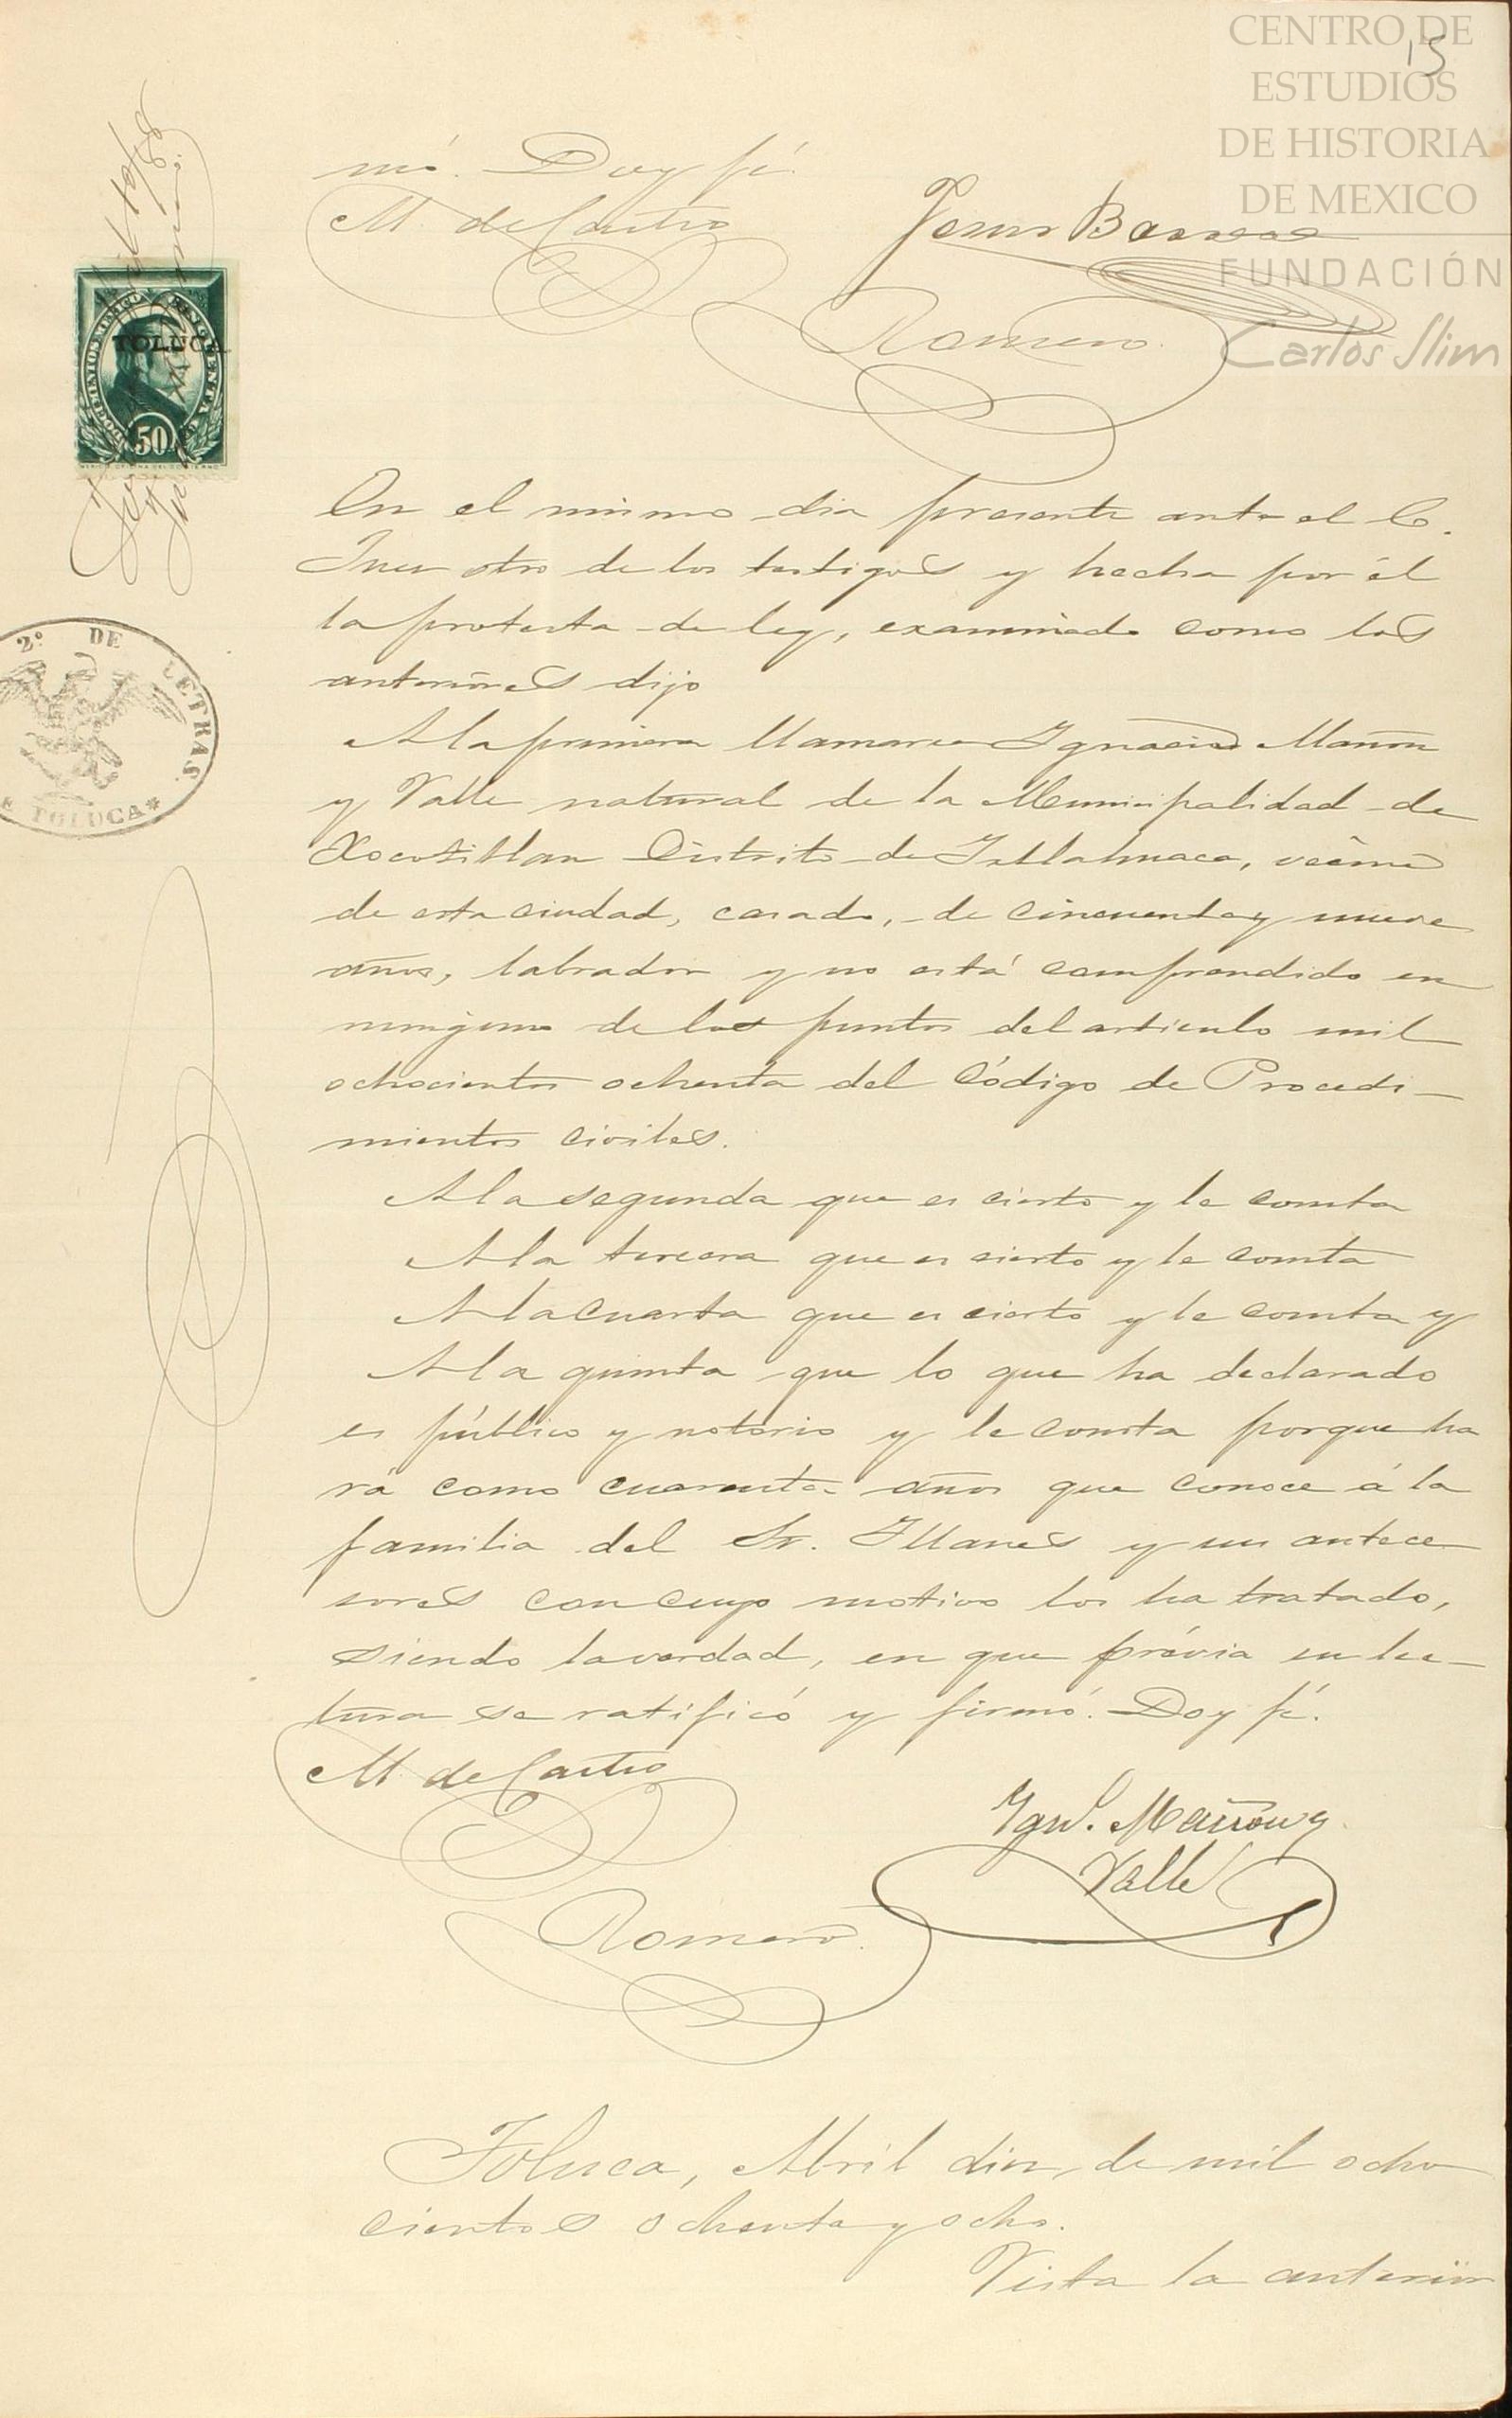 CENTRO DE
ESTUDIOS
DE HISTORIA
DE MEXICO
FUNDACIÓN
Carlos Slim
15
mó. Doy fé.
M. de Castro
Jesus Barrera
Romero
DOCUMENTOS MEXICO
TOLUCA
50
2º DE LETRAS
TOLUCA
En el mismo dia presente ante el C.
Juez otro de los testigos y hecha por él
la protesta de ley, examinado como los
anteriores dijo
A la primera llamarse Ignacio Mañon
y Valle natural de la Municipalidad de
Xocotitlan Distrito de Ixtlahuaca, vecino
de esta ciudad, casado, de cincuenta y nueve
años, labrador y no está comprendido en
ninguno de los puntos del articulo mil
ochocientos ochenta del Código de Procedi-
mientos civiles.
A la segunda que es cierto y le consta
A la tercera que es cierto y le consta
A la cuarta que es cierto y le consta y
A la quinta que lo que ha declarado
es público y notorio y le consta porque ha
rá como cuarenta años que conoce á la
familia del Sr. Illanes y sus antece
sores con cuyo motivo los ha tratado,
siendo la verdad, en que prévia su lec-
tura se ratificó y firmó. Doy fé.
M. de Castro
Igno. Mañon y
Valle
Romero
Toluca, Abril diez de mil ocho
cientos ochenta y ocho.
Vista la anterior